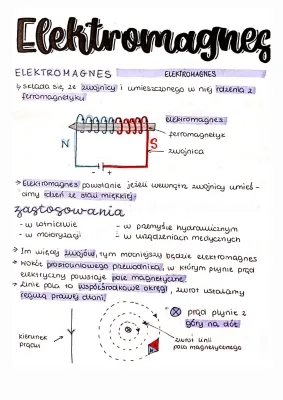 Elektromagnes
ELEKTROMAGNES ELEKTROMAGNES
→ składa się ze zwojnicy i umieszczonego w niej rdzenia z
ferromagnetyku
elektromagnes
ferromagnetyk
N S
zwojnica
- +
→ Elektromagnes powstanie jeżeli wewnątrz zwojnicy umieś-
cimy rdzeń ze stali miękkiej.
zastosowania
- w lotnictwie - w przemyśle hydraulicznym
- w motoryzacji - w urządzeniach medycznych
→ Im więcej zwojów, tym mocniejszy będzie elektromagnes
→ Wokół prostoliniowego przewodnika, w którym płynie prąd
elektryczny powstaje pole magnetyczne.
→ Linie pola to współśrodkowe okręgi, zwrot ustalamy
regułą prawej dłoni.
prąd płynie z
góry na dół.
kierunek
prądu
zwrot linii
pola magnetycznego